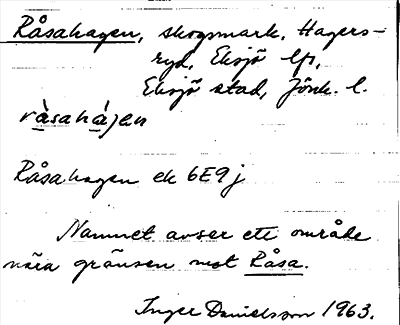 Råsahagen, skogsmark, Hagers-
ryd, Eksjö lfs,
Eksjö stad, Jönk. l.
ràsahàjen
Råsahagen ek 6E9j
Namnet avser ett område
nära gränsen mot Råsa.
Inger Danielsson 1963.